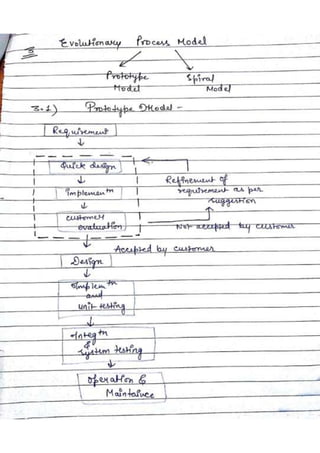 3 Evolutionary Process Model
Prototype Model
Spiral Model
3.1) Prototype Model -
Requirement
Quick design
implemenᵗⁿ
customer evaluation
Refinement of requirement as per suggestion
Not accepted by customer
Accepted by customer
Design
Implemᵗⁿ and unit testing
Integᵗⁿ & System testing
Operation & Maintaince